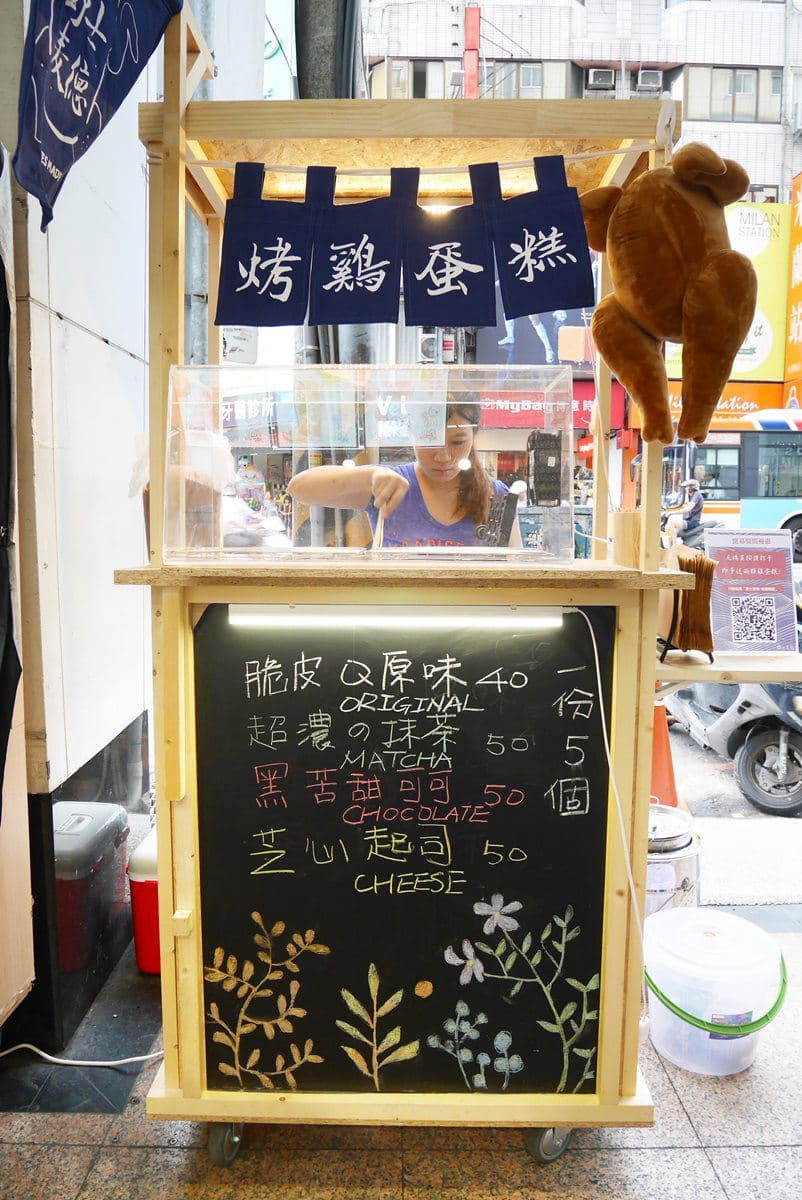 烤雞蛋糕
MILAN
STATION
MyBag
牙醫診所
脆皮Q原味 40
ORIGINAL
超濃の抹茶 50
MATCHA
黑苦甜可可 50
CHOCOLATE
芝心起司 50
CHEESE
一份5個